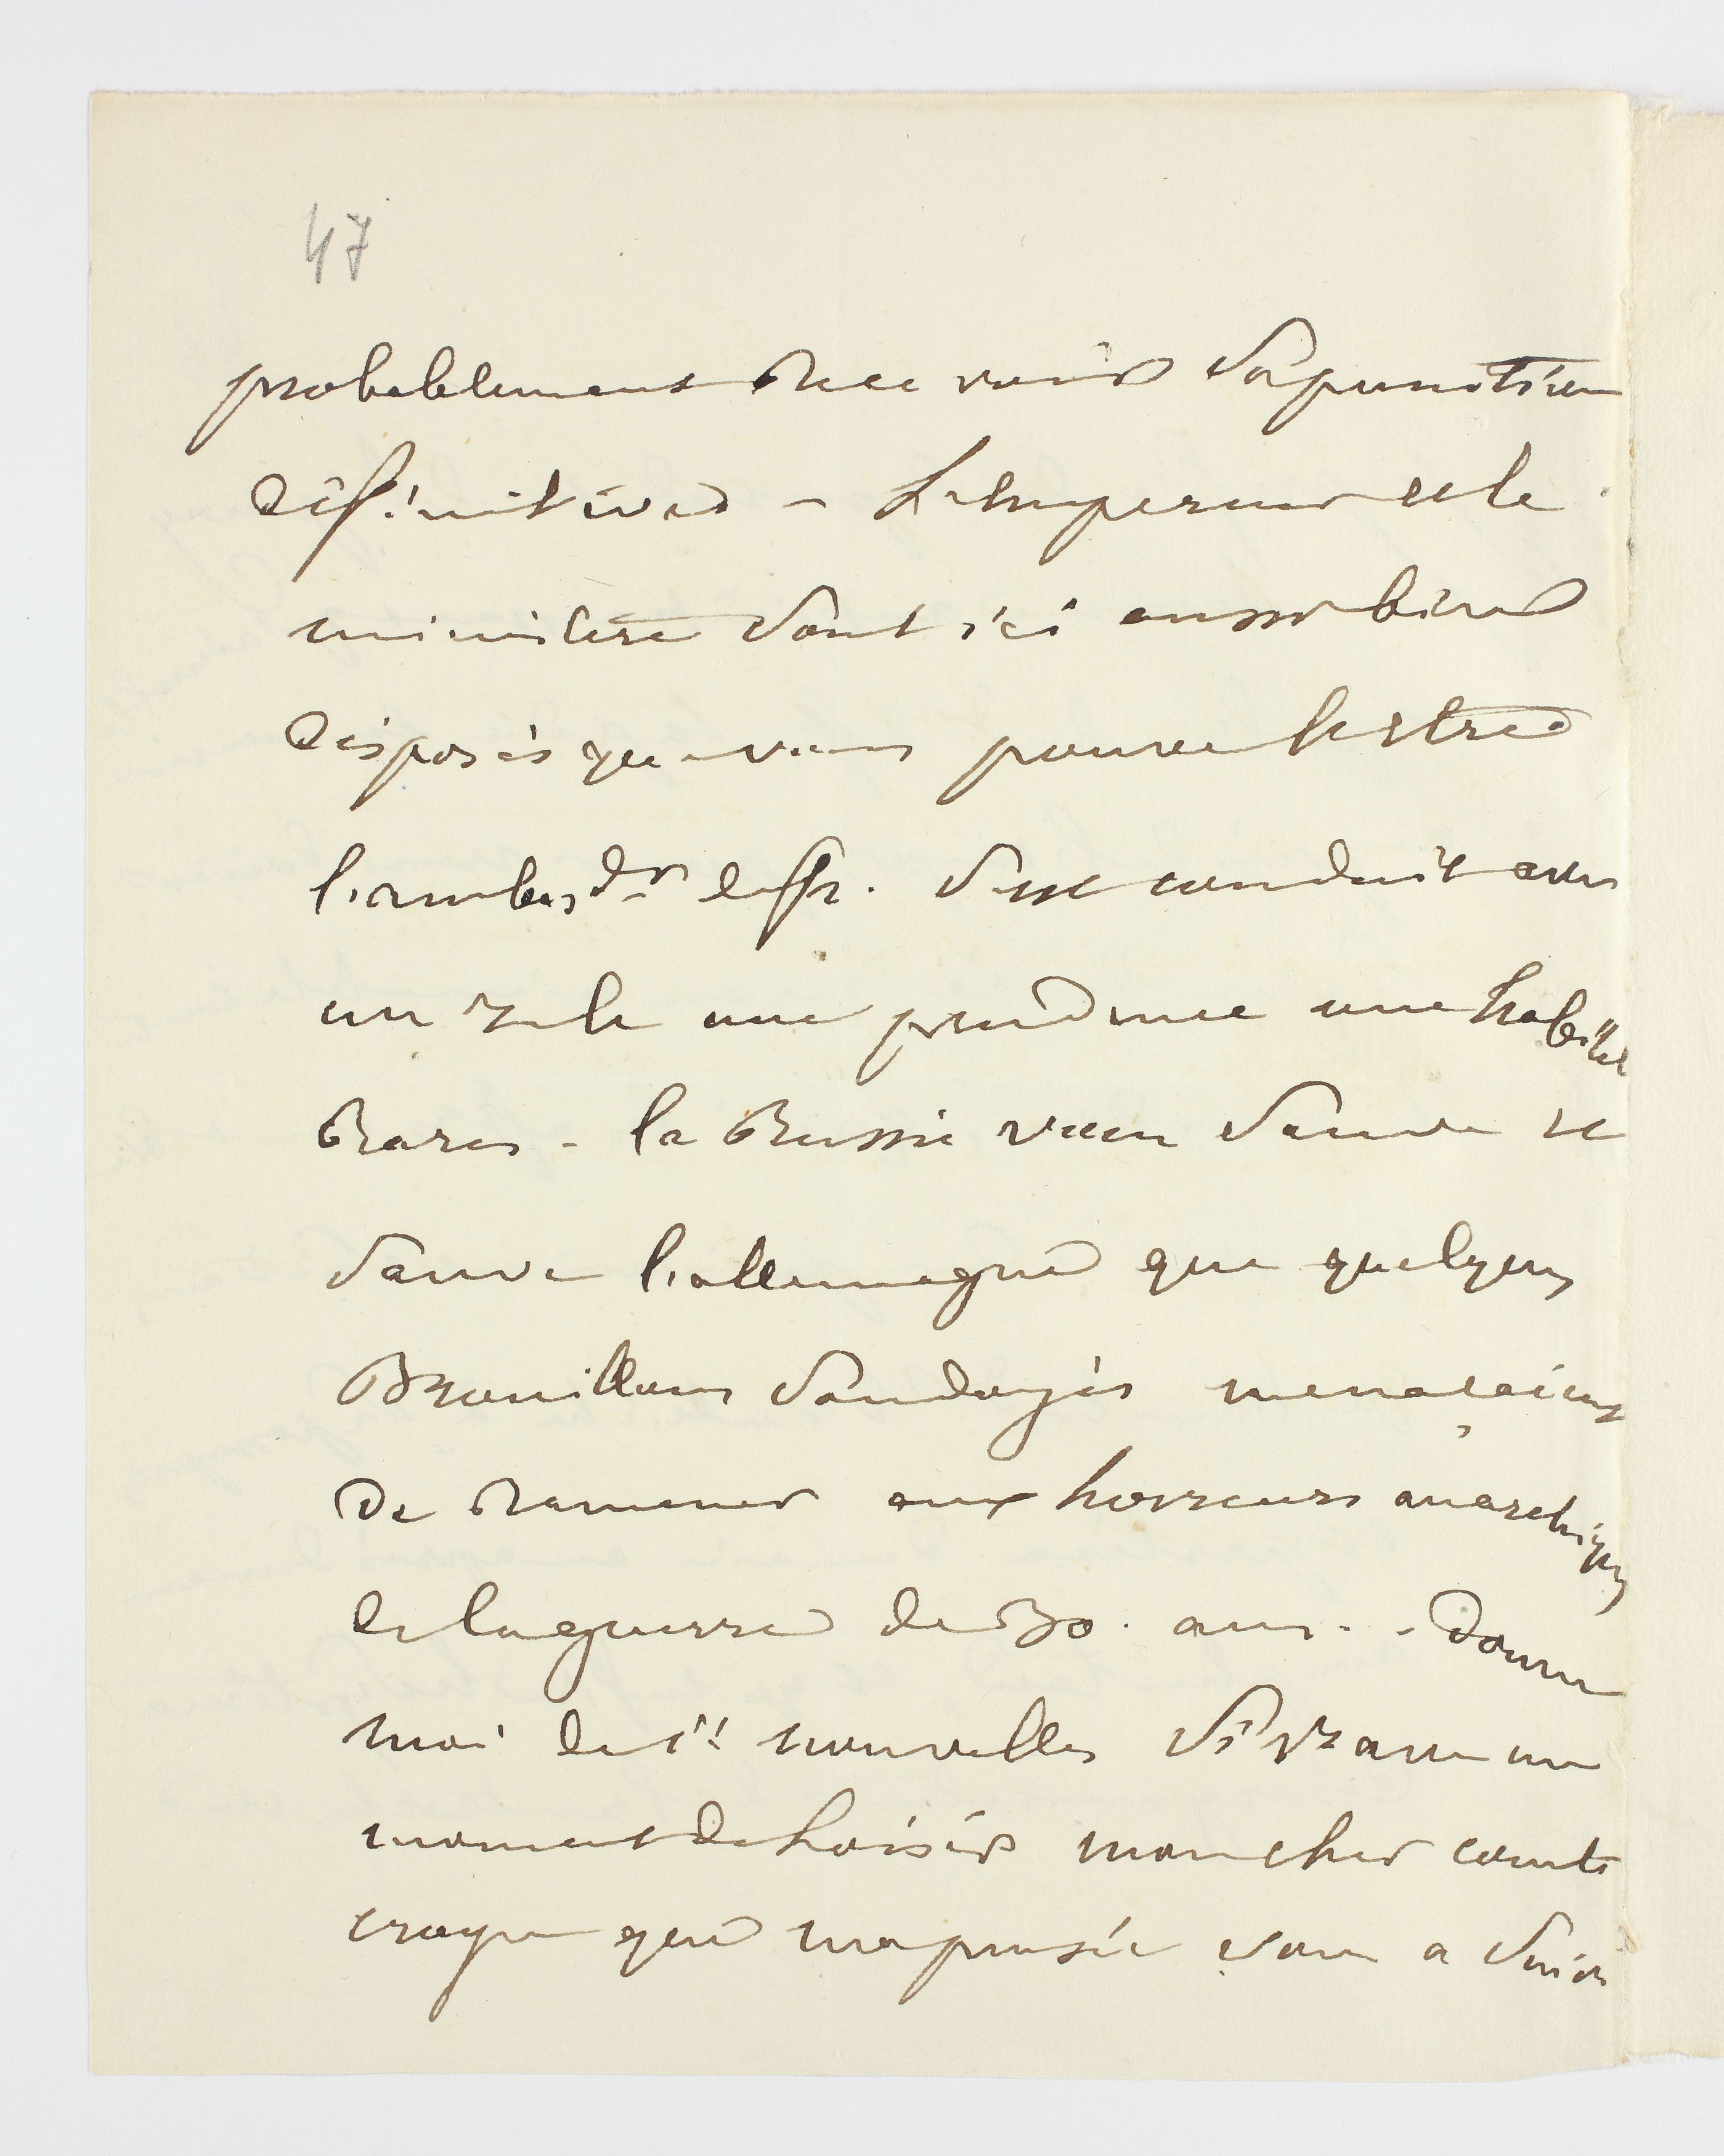 47
probablement recevoir sa punition
définitive – L'empereur et le
ministere sont ici aussi bien
disposés que vous pouvez l'etre
l'ambas.dr d fr. s'est conduit avec
un zele une prudence une habilité
rares – la Russie vien sauve et
sauve l'allemagne que quelques
Brouillons soudoyés menaçaient
de ramener aux horreurs anarchiques
de la guerre de 30. ans. – donnez
moi de nouvelles si vs avez un
moment de loisir mon cher comte
croyez que ma pensée vous a suivi